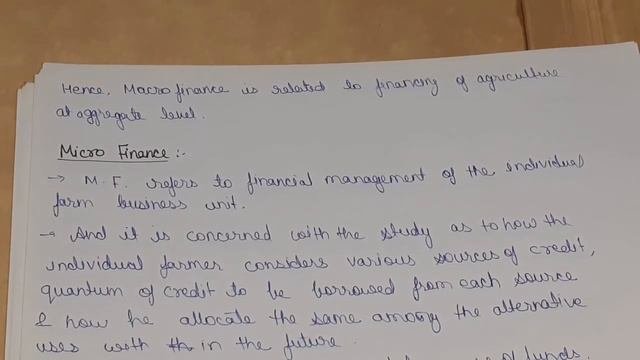 Hence, Macrofinance is related to financing of agriculture
at aggregate level.
Micro Finance :-
→ M.F. refers to financial management of the individual
farm business unit.
→ And it is concerned with the study as to how the
individual farmer considers various sources of credit,
quantum of credit to be borrowed from each source
& how he allocate the same among the alternative
uses with in the future.
funds